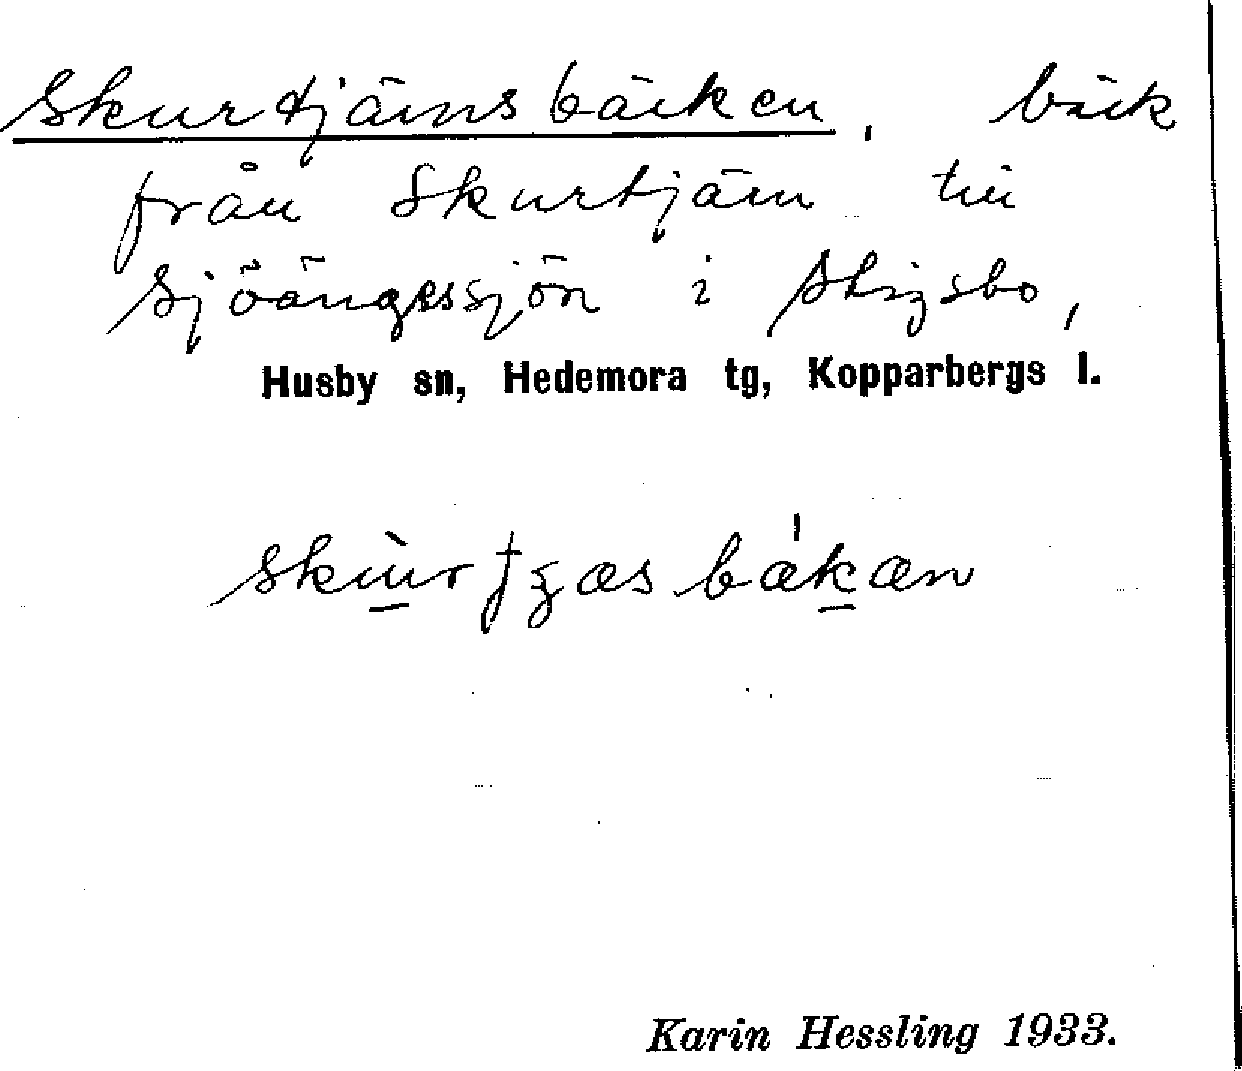 Skurtjärnsbäcken, bäck
från Skurtjärn till
Sjöängssjön i Stigsbo,
Husby sn, Hedemora tg, Kopparbergs l.
Karin Hessling 1933.